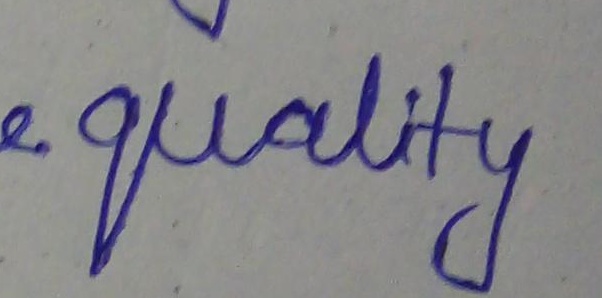 e. quality